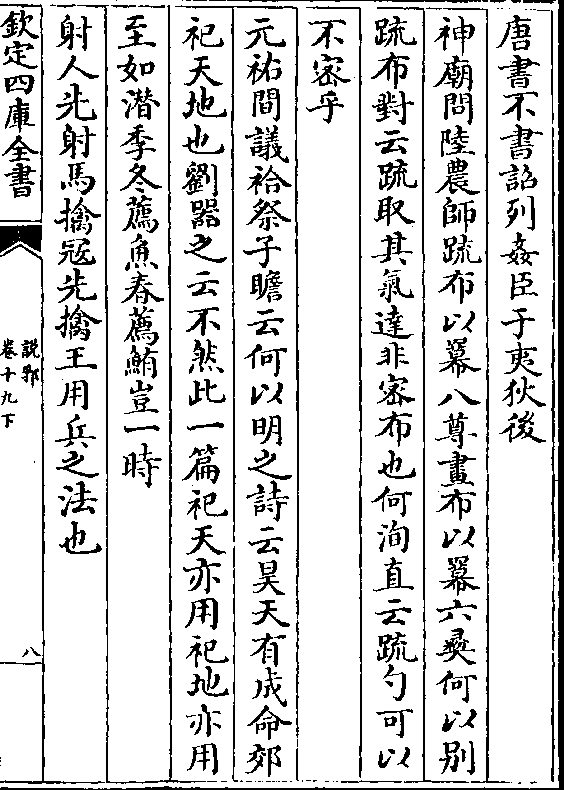 唐書不書詔列姦臣于夷狄後
神廟問陸農師疏布以冪八尊畫布以冪六彝何以别
疏布對云疏取其氣達非密布也何洵直云疏勺可以
不密乎
元祐間議祫祭子瞻云何以明之詩云昊天有成命郊
祀天地也劉器之云不然此一篇祀天亦用祀地亦用
至如潜季冬薦魚春薦鮪豈一時
射人先射馬擒冦先擒王用兵之法也
欽定四庫全書
說郛
卷十九下
八